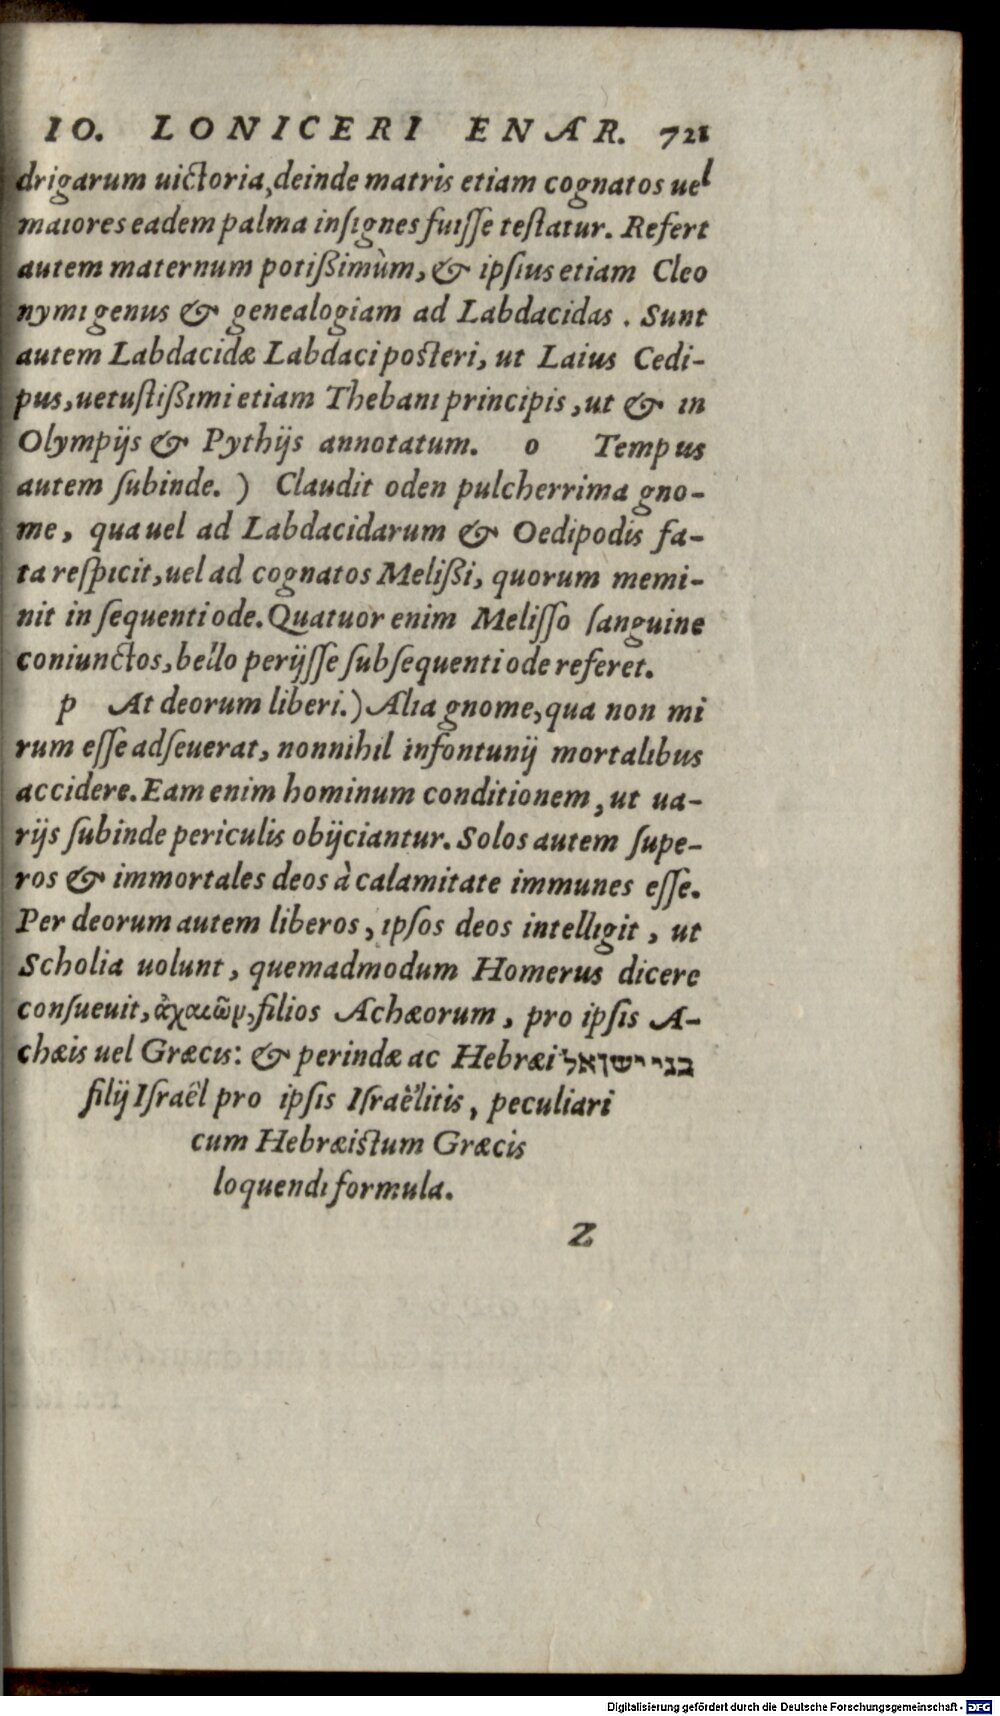 IO. LONICERI ENAR. 721
drigarum uictoria, deinde matris etiam cognatos uel
maiores eadem palma insignes fuisse testatur. Refert
autem maternum potißimùm, & ipsius etiam Cleo
nymi genus & genealogiam ad Labdacidas. Sunt
autem Labdacidæ Labdaci posteri, ut Laius Cedi-
pus, uetustißimi etiam Thebani principis, ut & in
Olympijs & Pythijs annotatum. o Tempus
autem subinde. ) Claudit oden pulcherrima gno-
me, qua uel ad Labdacidarum & Oedipodis fa-
ta respicit, uel ad cognatos Melißi, quorum memi-
nit in sequenti ode. Quatuor enim Melisso sanguine
coniunctos, bello perijsse subsequenti ode referet.
p At deorum liberi.) Alia gnome, qua non mi
rum esse adseuerat, nonnihil infontunij mortalibus
accidere. Eam enim hominum conditionem, ut ua-
rijs subinde periculis obijciantur. Solos autem supe-
ros & immortales deos à calamitate immunes esse.
Per deorum autem liberos, ipsos deos intelligit, ut
Scholia uolunt, quemadmodum Homerus dicere
consueuit, ἀχαιῶν, filios Achæorum, pro ipsis A-
chæis uel Græcis: & perindæ ac Hebræi בני ישראל
filij Israël pro ipsis Israëlitis, peculiari
cum Hebræistum Græcis
loquendi formula.
Z
Digitalisierung gefördert durch die Deutsche Forschungsgemeinschaft - DFG